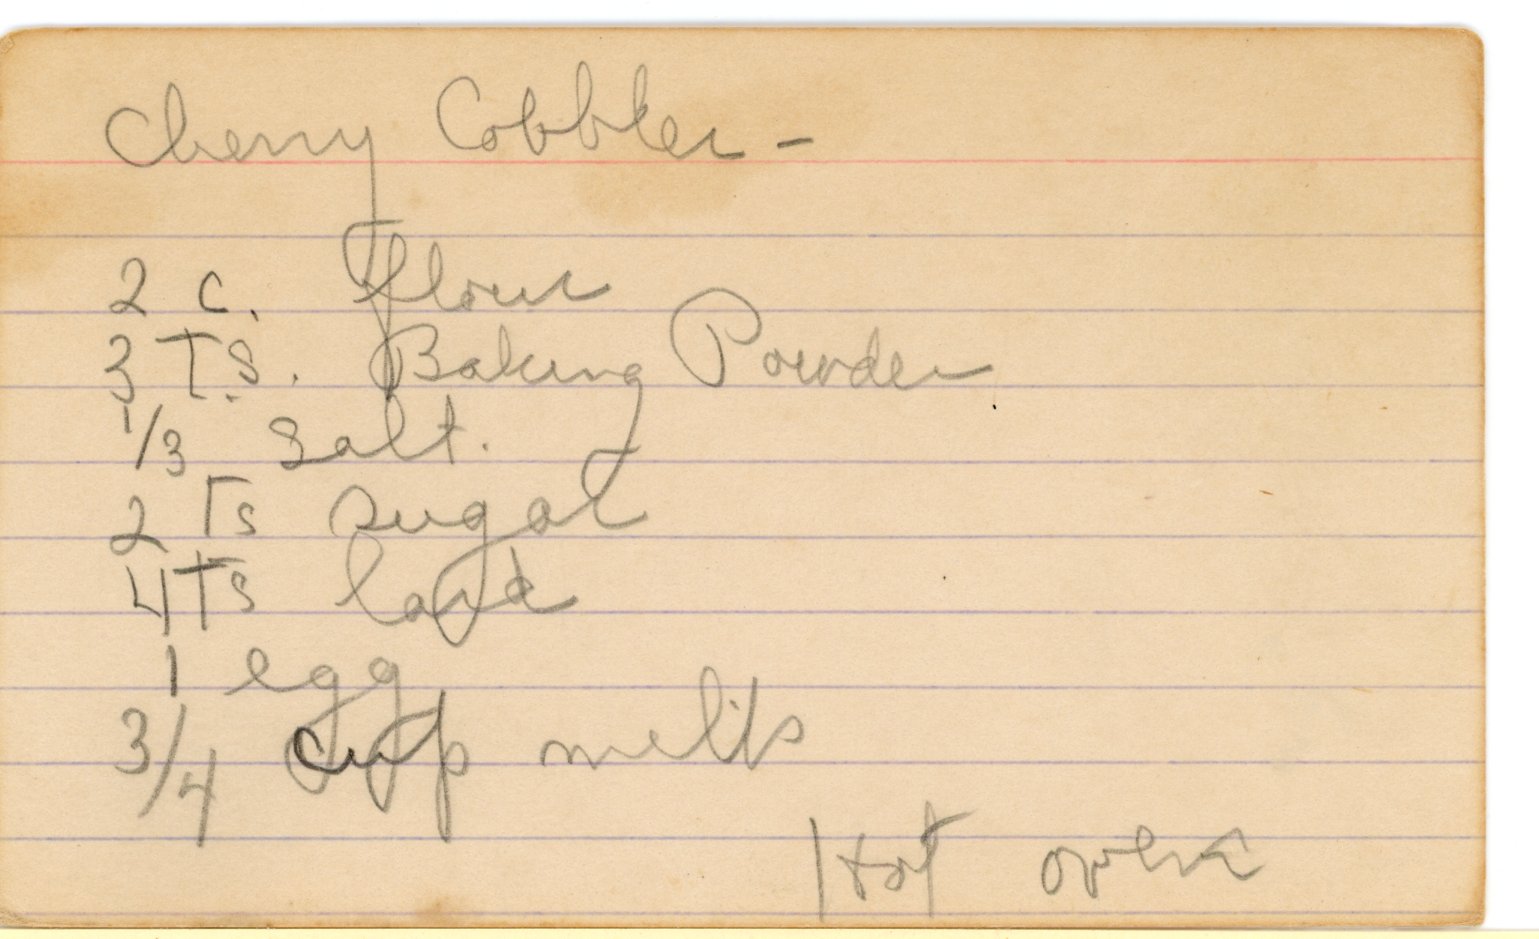 Cherry Cobbler -
2 c. flour
3 T.S. Baking Powder
1/3 Salt.
2 Ts sugar
4 Ts lard
1 egg
3/4 cup
Hot oven